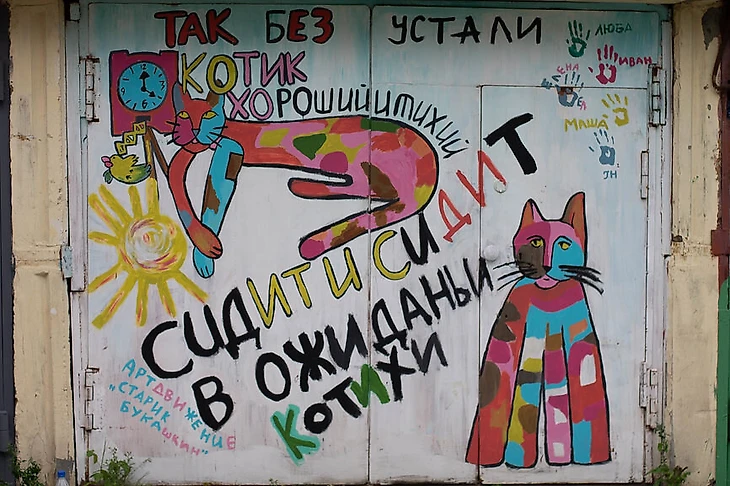 ТАК БЕЗ УСТАЛИ
КОТИК
ХОРОШИЙ И ТИХИЙ
СИДИТ И СИДИТ
В ОЖИДАНЬИ
КОТИХИ
АРТДВИЖЕНИЕ
"СТАРИК
БУКАШКИН"
ЛЮБА
ИВАН
МАША